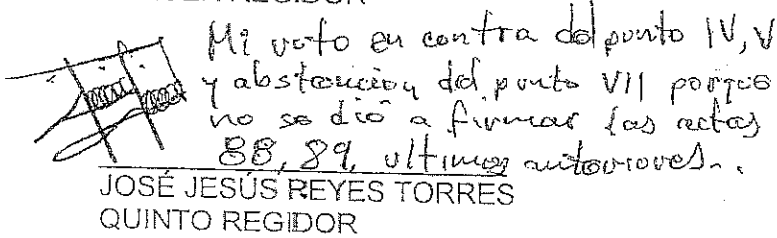 Mi voto en contra del punto IV, V
y abstención del punto VII porque
no se dió a firmar las actas
88, 89, ultimas anteriores.
JOSÉ JESÚS REYES TORRES
QUINTO REGIDOR